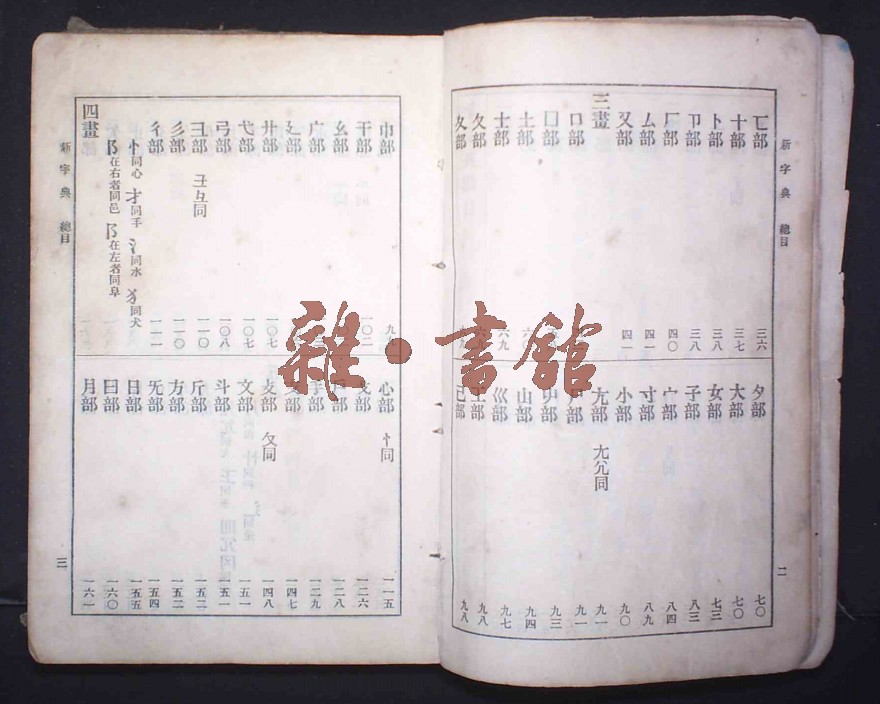 新字典 總目
二
匸部 三六
十部 三七
卜部 三八
卩部 三八
厂部 四〇
厶部 四一
又部 四一
三畫
口部
囗部
土部 六〇
士部 六九
夂部 六九
夊部
夕部 七〇
大部 七〇
女部 七三
子部 八三
宀部 八四
寸部 八九
小部 九〇
尢部 尣兀同 九一
尸部 九一
屮部 九三
山部 九四
巛部 九七
工部 九八
己部 九八
新字典 總目
三
巾部
干部 一〇二
幺部
广部
廴部
廾部 一〇七
弋部 一〇七
弓部 一〇八
彐部 彑同 一一〇
彡部 一一〇
彳部 一一一
忄同心 扌同手 氵同水 犭同犬
阝在右者同邑 阝在左者同阜
四畫
心部 忄同 一一五
戈部 一二六
戶部 一二八
手部 一二九
支部 一四七
攴部 攵同 一四八
文部 一五一
斗部 一五一
斤部 一五二
方部 一五二
无部 一五四
日部 一五五
曰部 一六〇
月部 一六一
雜·書館